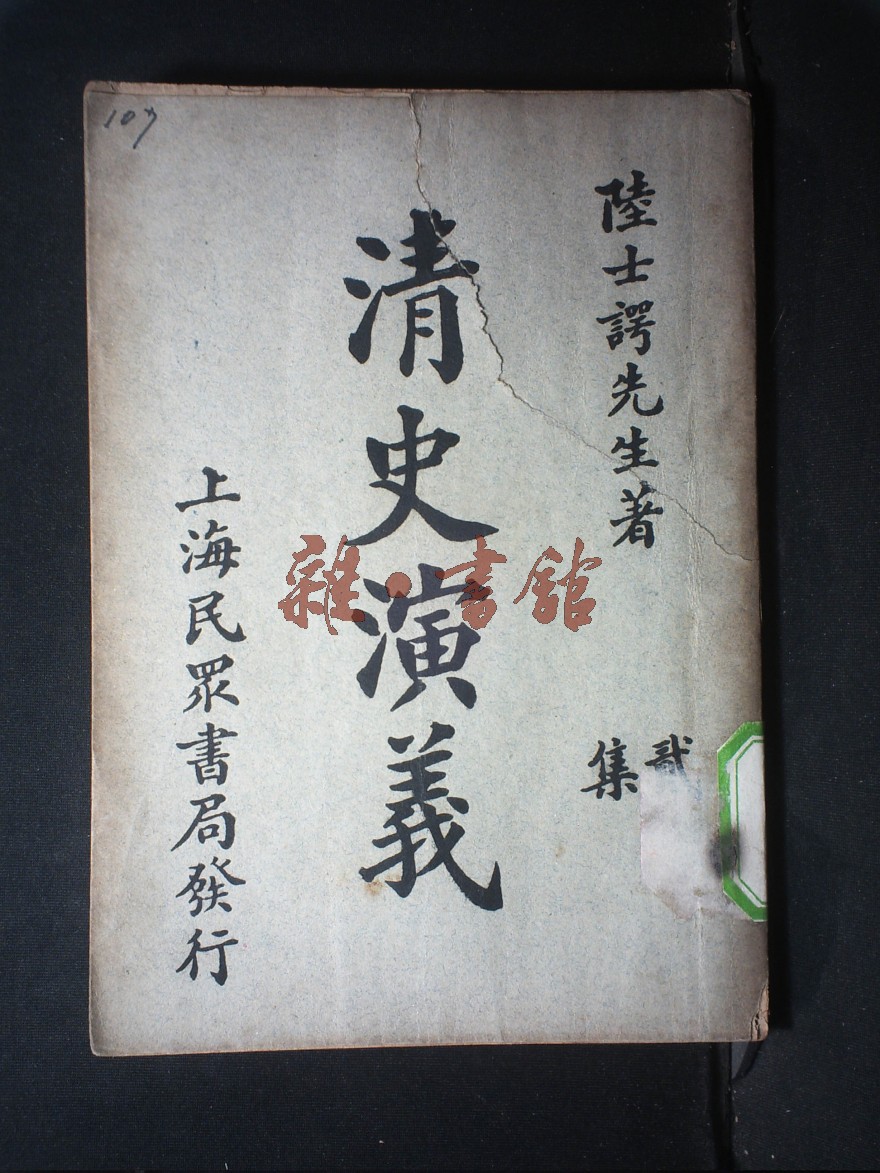 107
陸士諤先生著
貳
集
清史演義
上海民眾書局發行
雜·書館